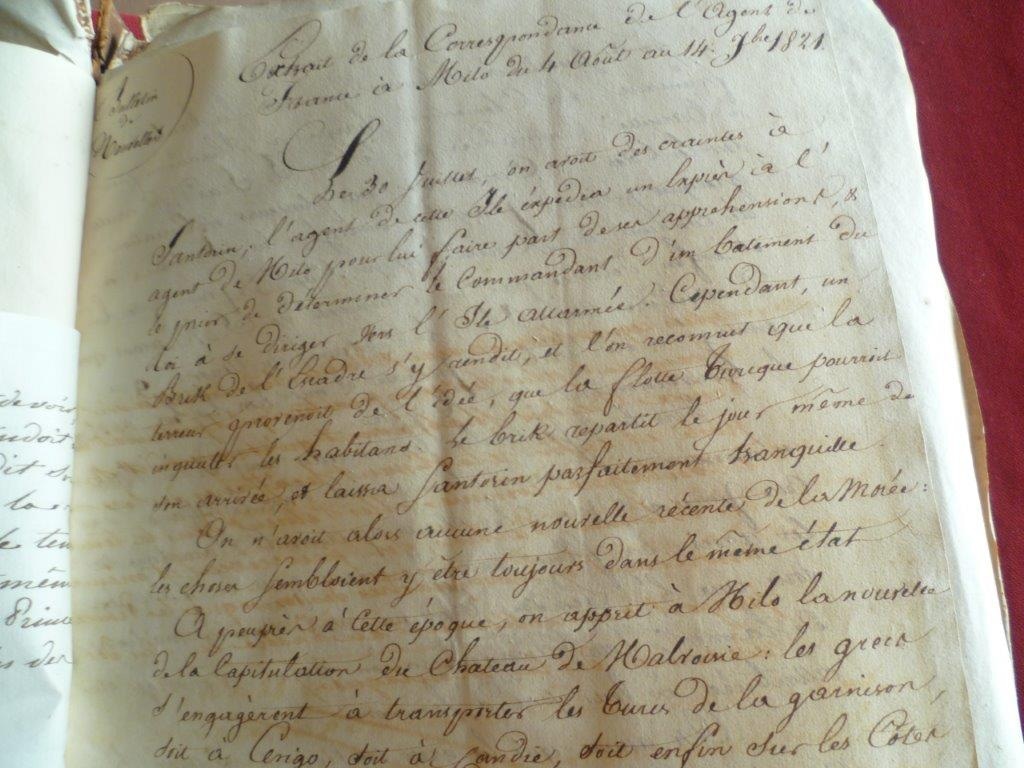 Extrait de la Correspondance de l'Agent de
France à Milo du 4 Août au 14. 7bre 1821.
Bulletin
de
Le 30 Juillet, on avoit des craintes à
Santorin, l'agent de cette Ile éxpédia un Exprès à l'
agent de Milo pour lui faire part de ses appréhensions, &
le prier de déterminer le Commandant d'un batiment du
Roi à se diriger vers l'Ile allarmée. Cependant, un
Brik de l'Escadre s'y rendit, et l'on reconnut que la
terreur provenoit de l'idée, que la flotte Turcque pourroit
inquieter les habitans. Le brik repartit le jour même de
son arrivée, et laissa Santorin parfaitement tranquille
On n'avoit alors aucune nouvelle récente de la Morée:
les choses sembloient y être toujours dans le même état
A peuprès à cette époque, on apprit à Milo la nouvelle
de la Capitulation du Chateau de Malvoisie: les grecs
s'engagèrent à transporter les Turcs de la garnison,
soit à Cerigo, soit à Candie, soit enfin sur les Cotes
devoir
dit
la
le
même
des